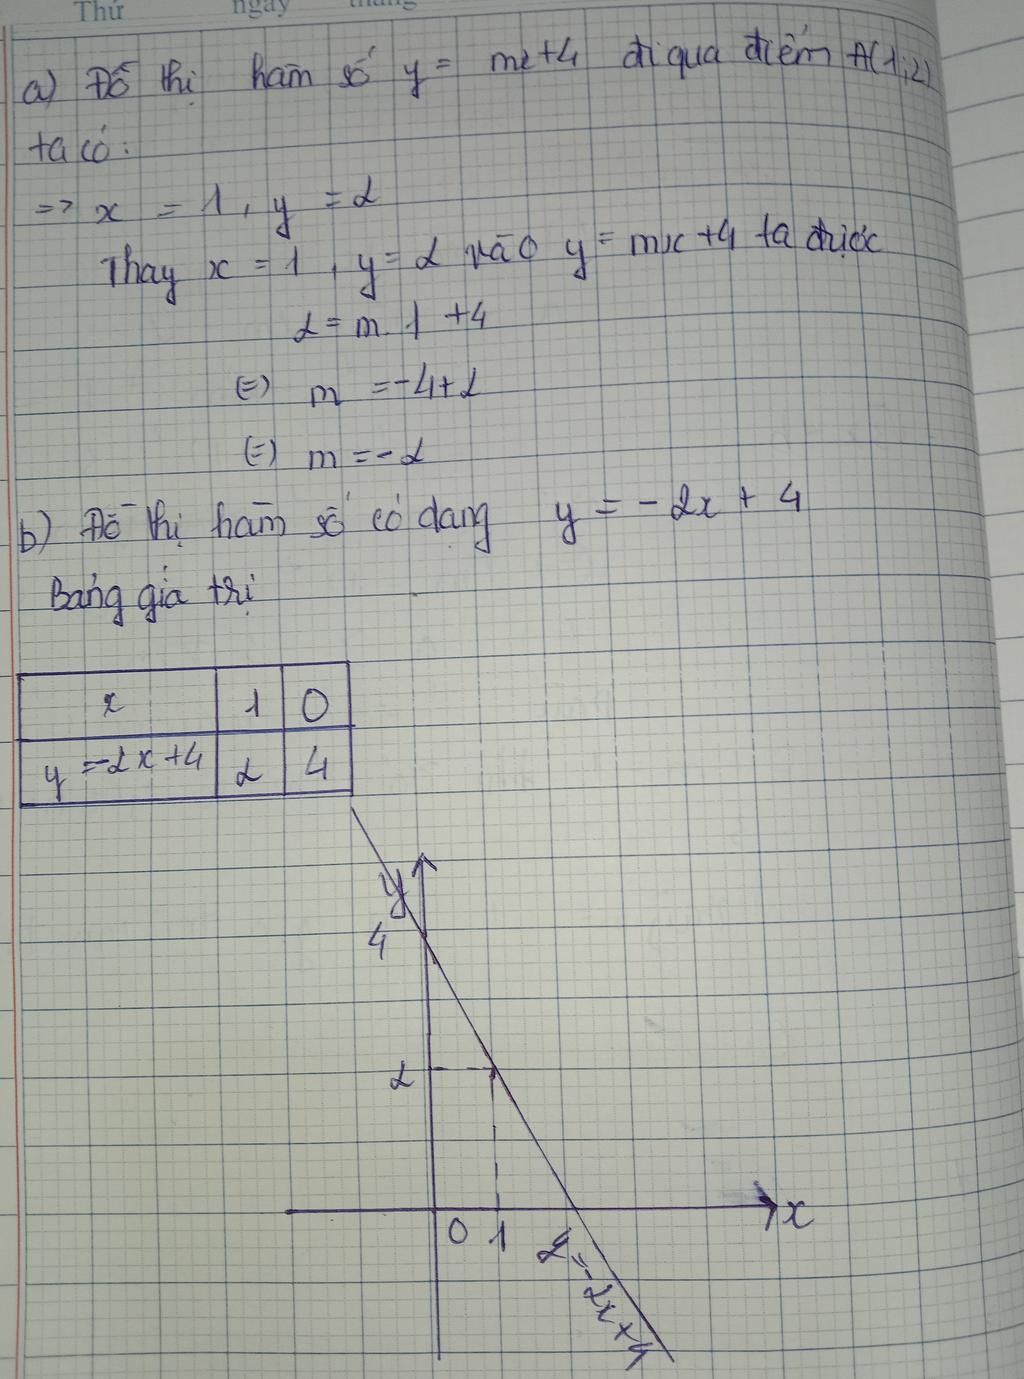 Thứ ngày tháng
a) Đồ thị hàm số y = mx+4 đi qua điểm A(1;2)
ta có:
=> x = 1, y = 2
Thay x = 1, y = 2 vào y = mx +4 ta được
2 = m. 1 +4
(=) m = -4+2
(=) m = -2
b) Đồ thị hàm số có dạng y = - 2x + 4
Bảng giá trị
x 1 0
y =-2x+4 2 4
y
4
2
0 1 x
y=-2x+4